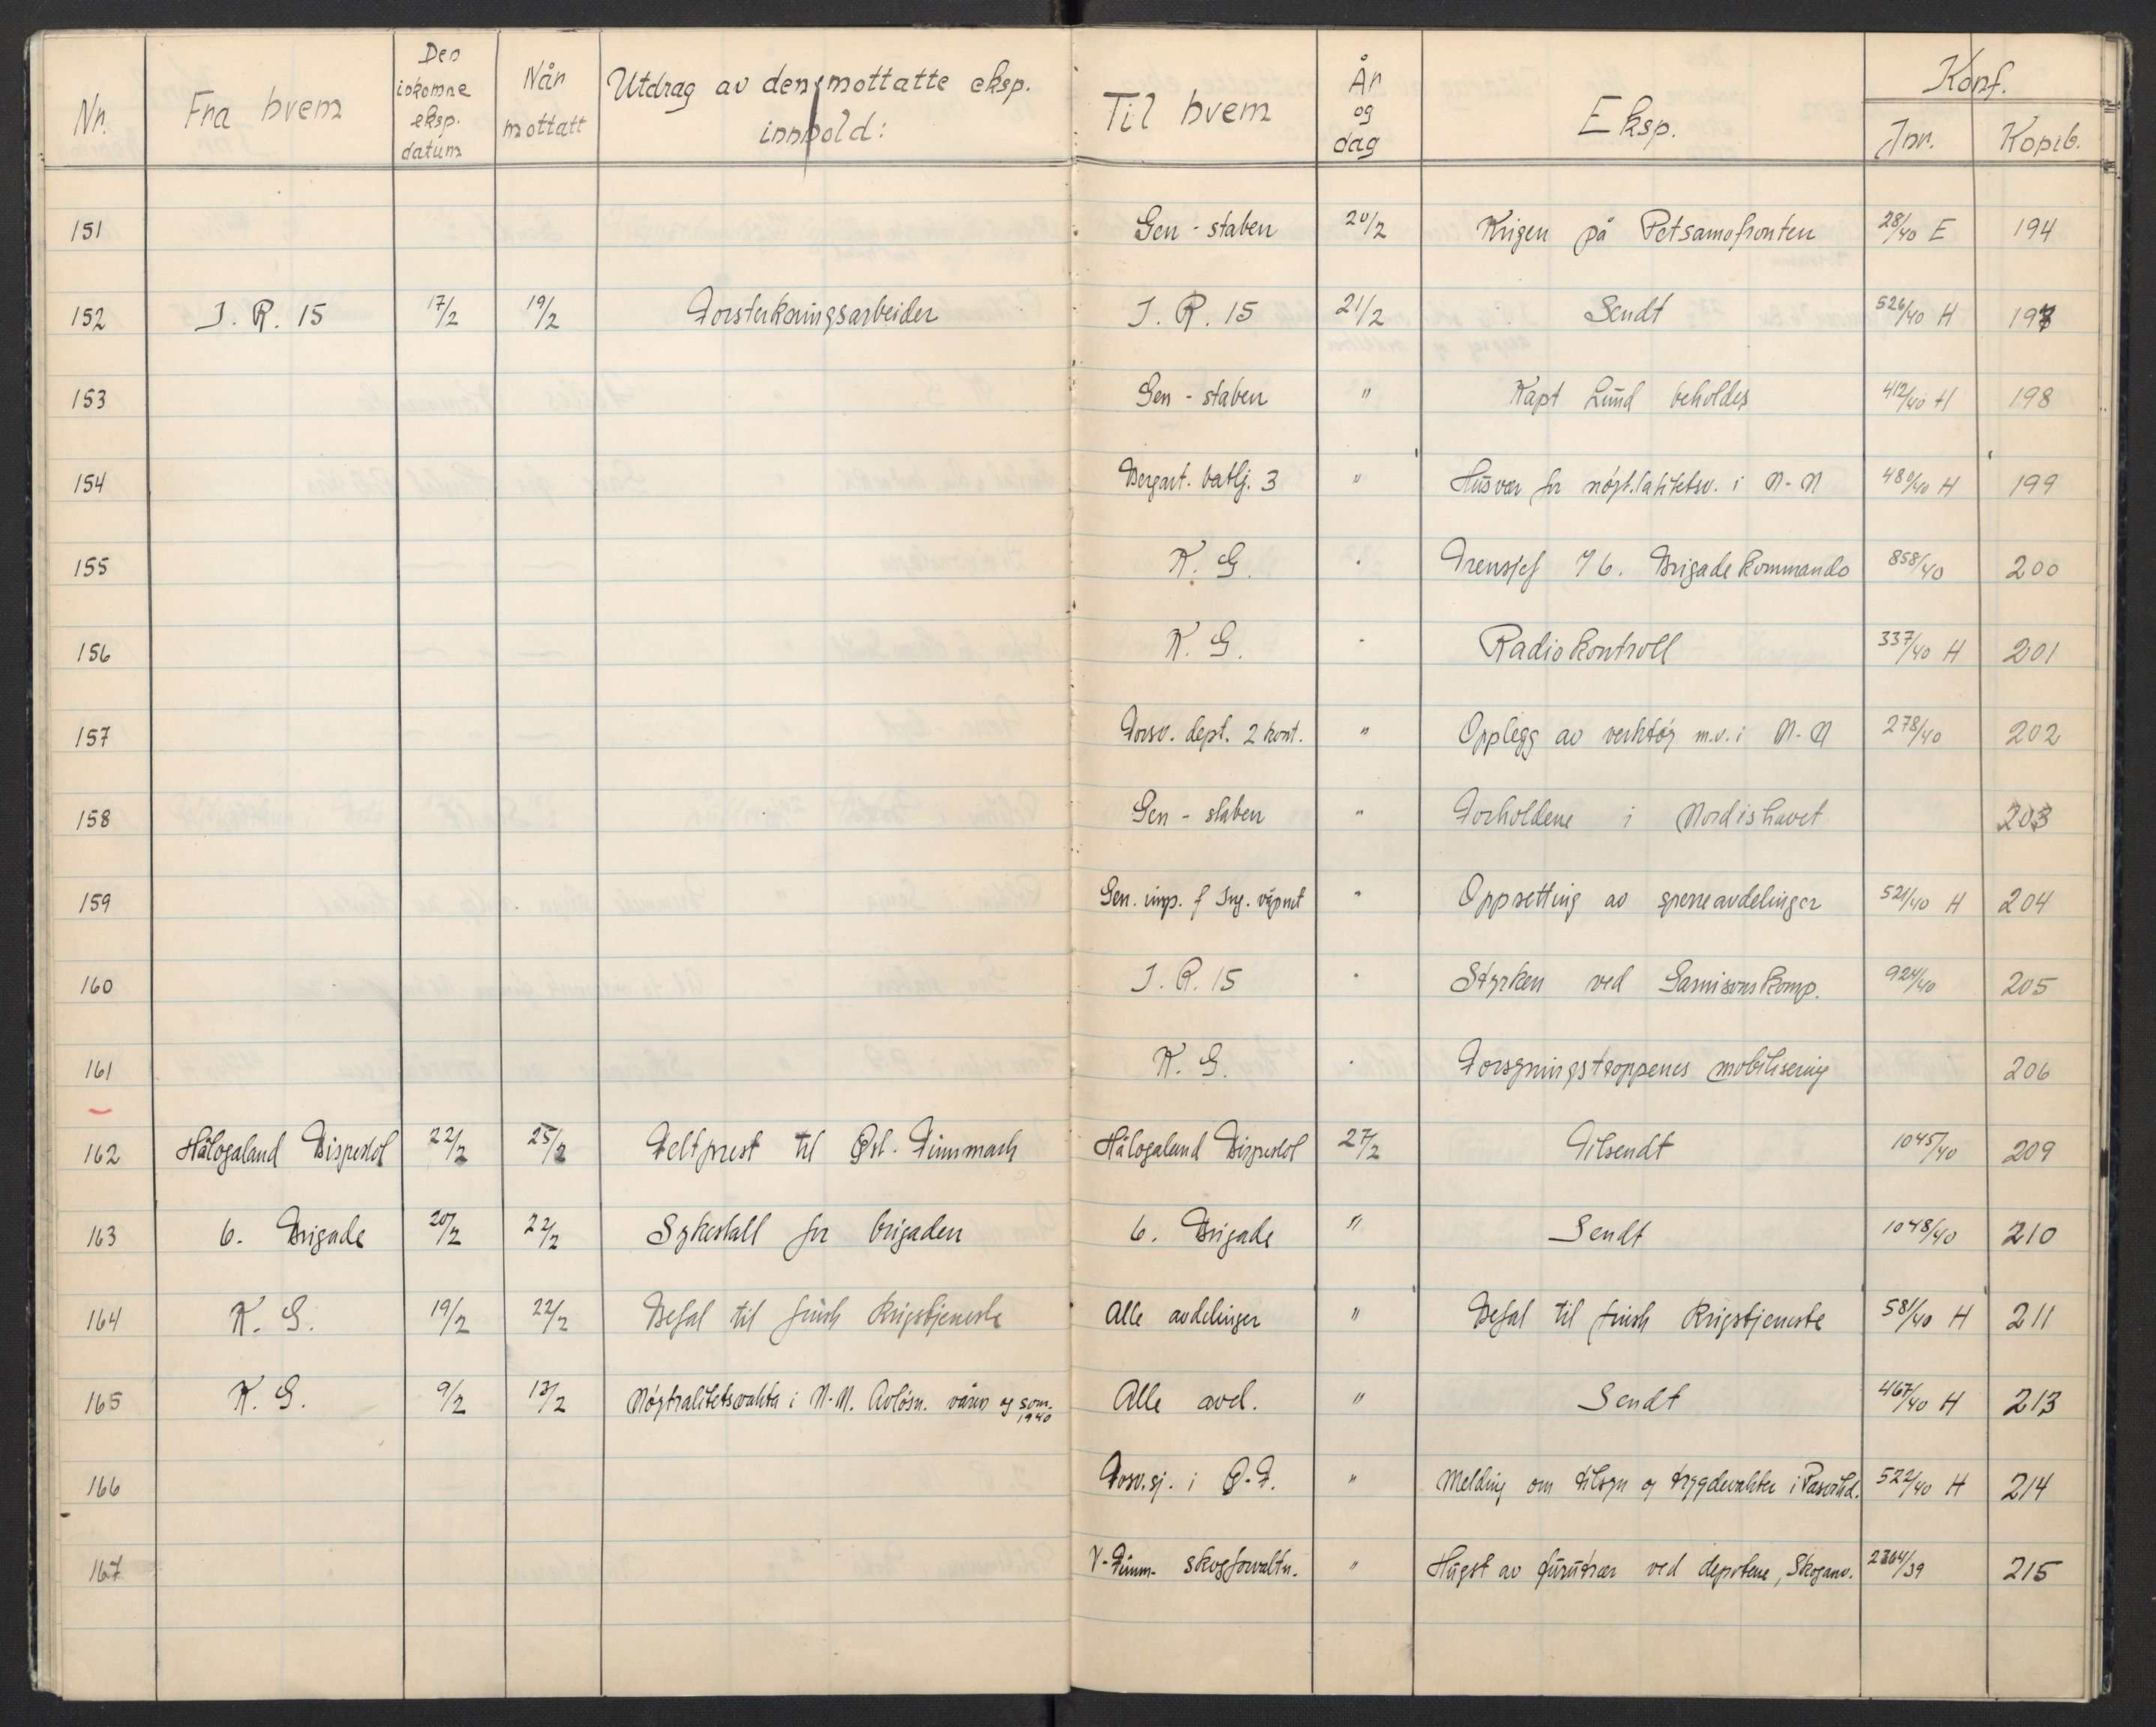 Nr. Fra hvem Den innkomne eksp. datum Når mottatt Utdrag av den mottatte eksp. innhold: Til hvem År og dag Eksp. Konf. Jnr. Kopib.
151 Gen-staben 20/2 Krigen på Petsamofronten 28/40 E 194
152 I.R. 15 17/2 19/2 Forsterkningsarbeider I.R. 15 21/2 Sendt 526/40 H 197
153 Gen-staben " Kapt Lund beholdes 412/40 H 198
154 Bergart. batlj. 3 " Husvær for nøytralitetsv. i N-N 480/40 H 199
155 K.G. " Trensjef v/ 6. Brigadekommando 858/40 200
156 K.G. " Radiokontroll 337/40 H 201
157 Forsv. dept. 2 kont. " Opplegg av verktøy m.v. i N-N 278/40 202
158 Gen-staben " Forholdene i Nordishavet 203
159 Gen. insp. f Ing. våpnet " Oppsetting av sperreavdelinger 521/40 H 204
160 I.R. 15 " Styrken ved Garnisonskomp. 924/40 205
161 K.G. " Forsyningstroppenes mobilisering 206
162 Hålogaland Bispestol 22/2 25/2 Feltprest til Øst-Finnmark Hålogaland Bispestol 27/2 Tilsendt 1045/40 209
163 6. Brigade 20/2 22/2 Sykestall for brigaden 6. Brigade " Sendt 1048/40 210
164 K.G. 19/2 22/2 Befal til finsk krigstjeneste Alle avdelinger " Befal til finsk krigstjeneste 581/40 H 211
165 K.G. 9/2 13/2 Nøytralitetsvakta i N-N. Avløsn. våren og som. 1940 Alle avd. " Sendt 467/40 H 213
166 Forsv.sj. i Ø-F. " Melding om tilsyn og trygdevakter i Pasvikd. 522/40 H 214
167 V-Finnm. skogforvaltn. " Hugst av furutrær ved depotene, Skoganv. 2364/39 215